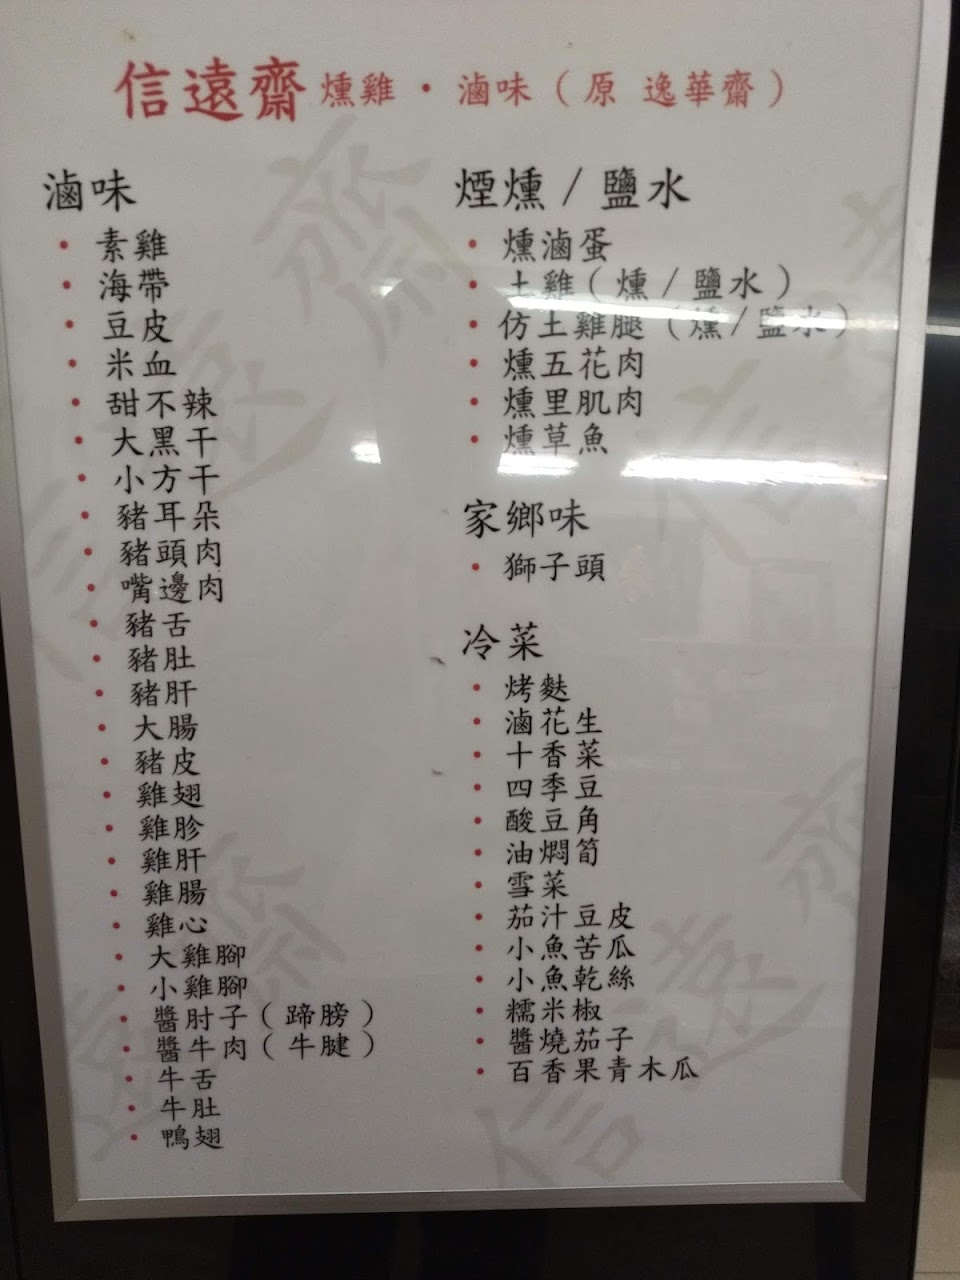 信遠齋 燻雞・滷味（原 逸華齋）
滷味
• 素雞
• 海帶
• 豆皮
• 米血
• 甜不辣
• 大黑干
• 小方干
• 豬耳朵
• 豬頭肉
• 嘴邊肉
• 豬舌
• 豬肚
• 豬肝
• 大腸
• 豬皮
• 雞翅
• 雞胗
• 雞肝
• 雞腸
• 雞心
• 大雞腳
• 小雞腳
• 醬肘子（蹄膀）
• 醬牛肉（牛腱）
• 牛舌
• 牛肚
• 鴨翅
煙燻/鹽水
• 燻滷蛋
• 土雞（燻/鹽水）
• 仿土雞腿（燻/鹽水）
• 燻五花肉
• 燻里肌肉
• 燻草魚
家鄉味
• 獅子頭
冷菜
• 烤麩
• 滷花生
• 十香菜
• 四季豆
• 酸豆角
• 油燜筍
• 雪菜
• 茄汁豆皮
• 小魚苦瓜
• 小魚乾絲
• 糯米椒
• 醬燒茄子
• 百香果青木瓜